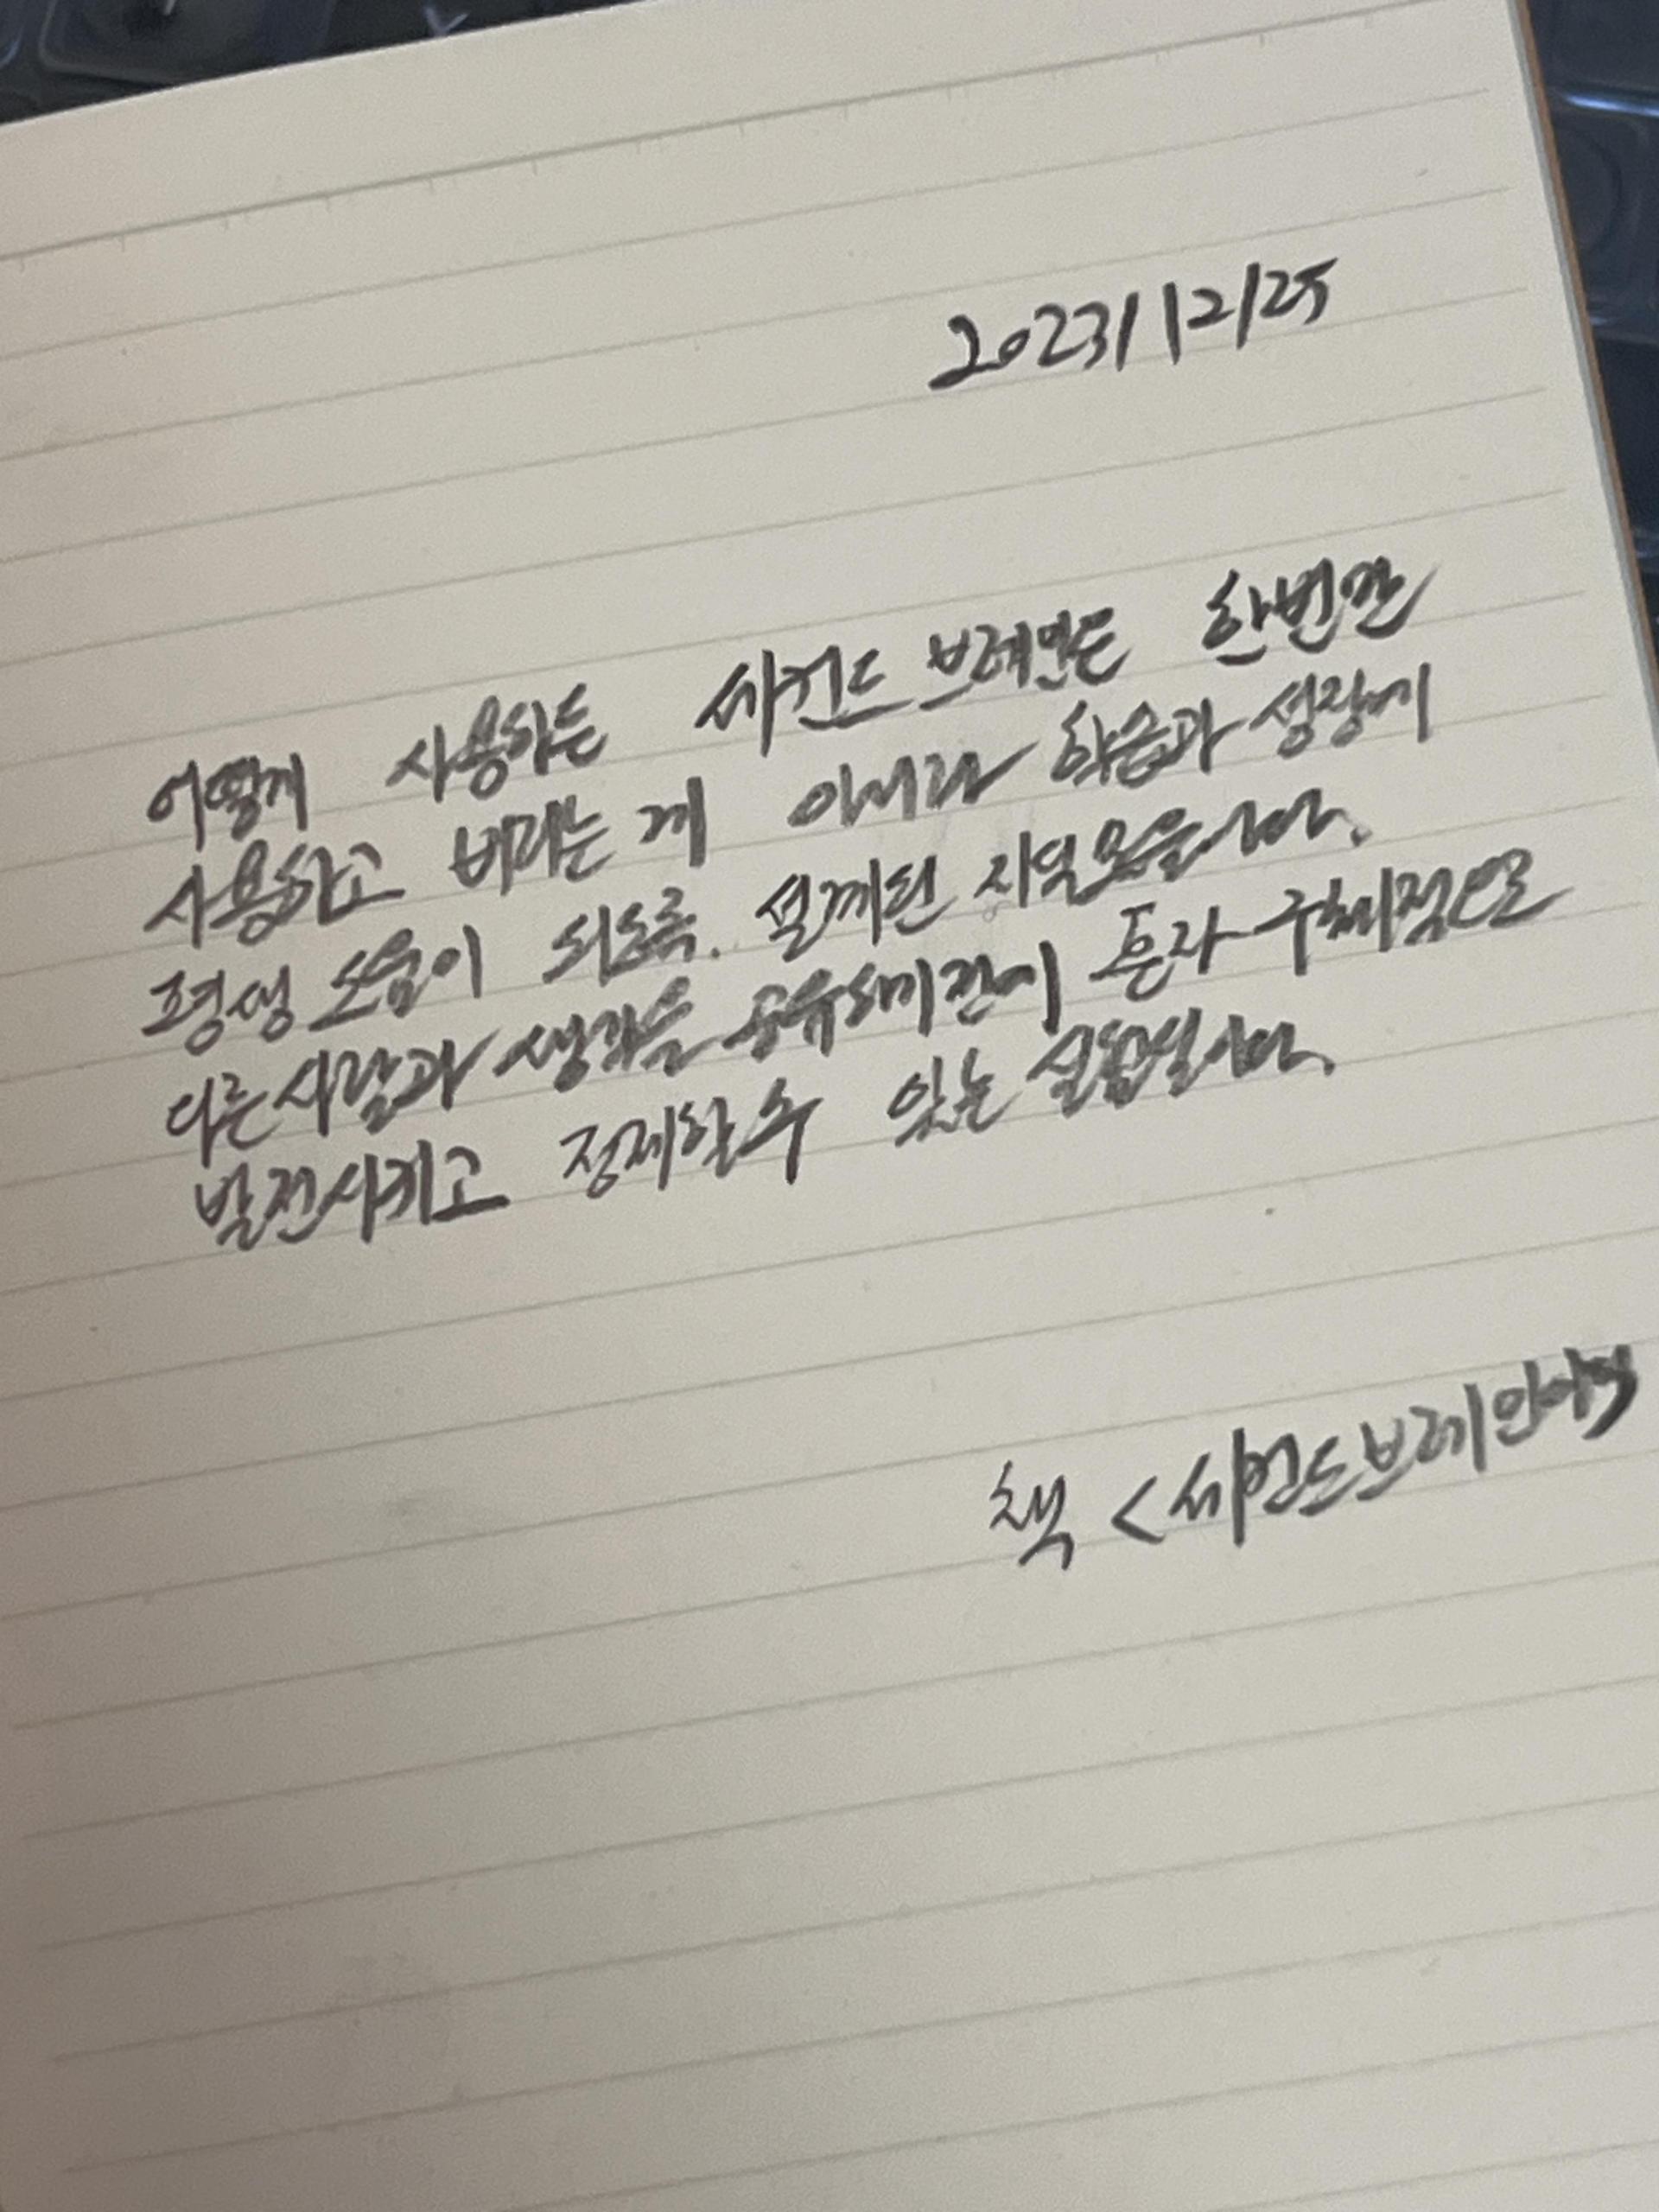 2023/12/25
어떻게 사용하든 세컨드 브레인은 한번만
사용하고 버리는 게 아니라 학습과 성장에
평생 도움이 되도록. 설계된 지식모음이다.
다른사람과 생각을 공유하기전에 혼자 구체적으로
발전시키고 정제할수 있는 실험실이다.
책 <세컨드브레인